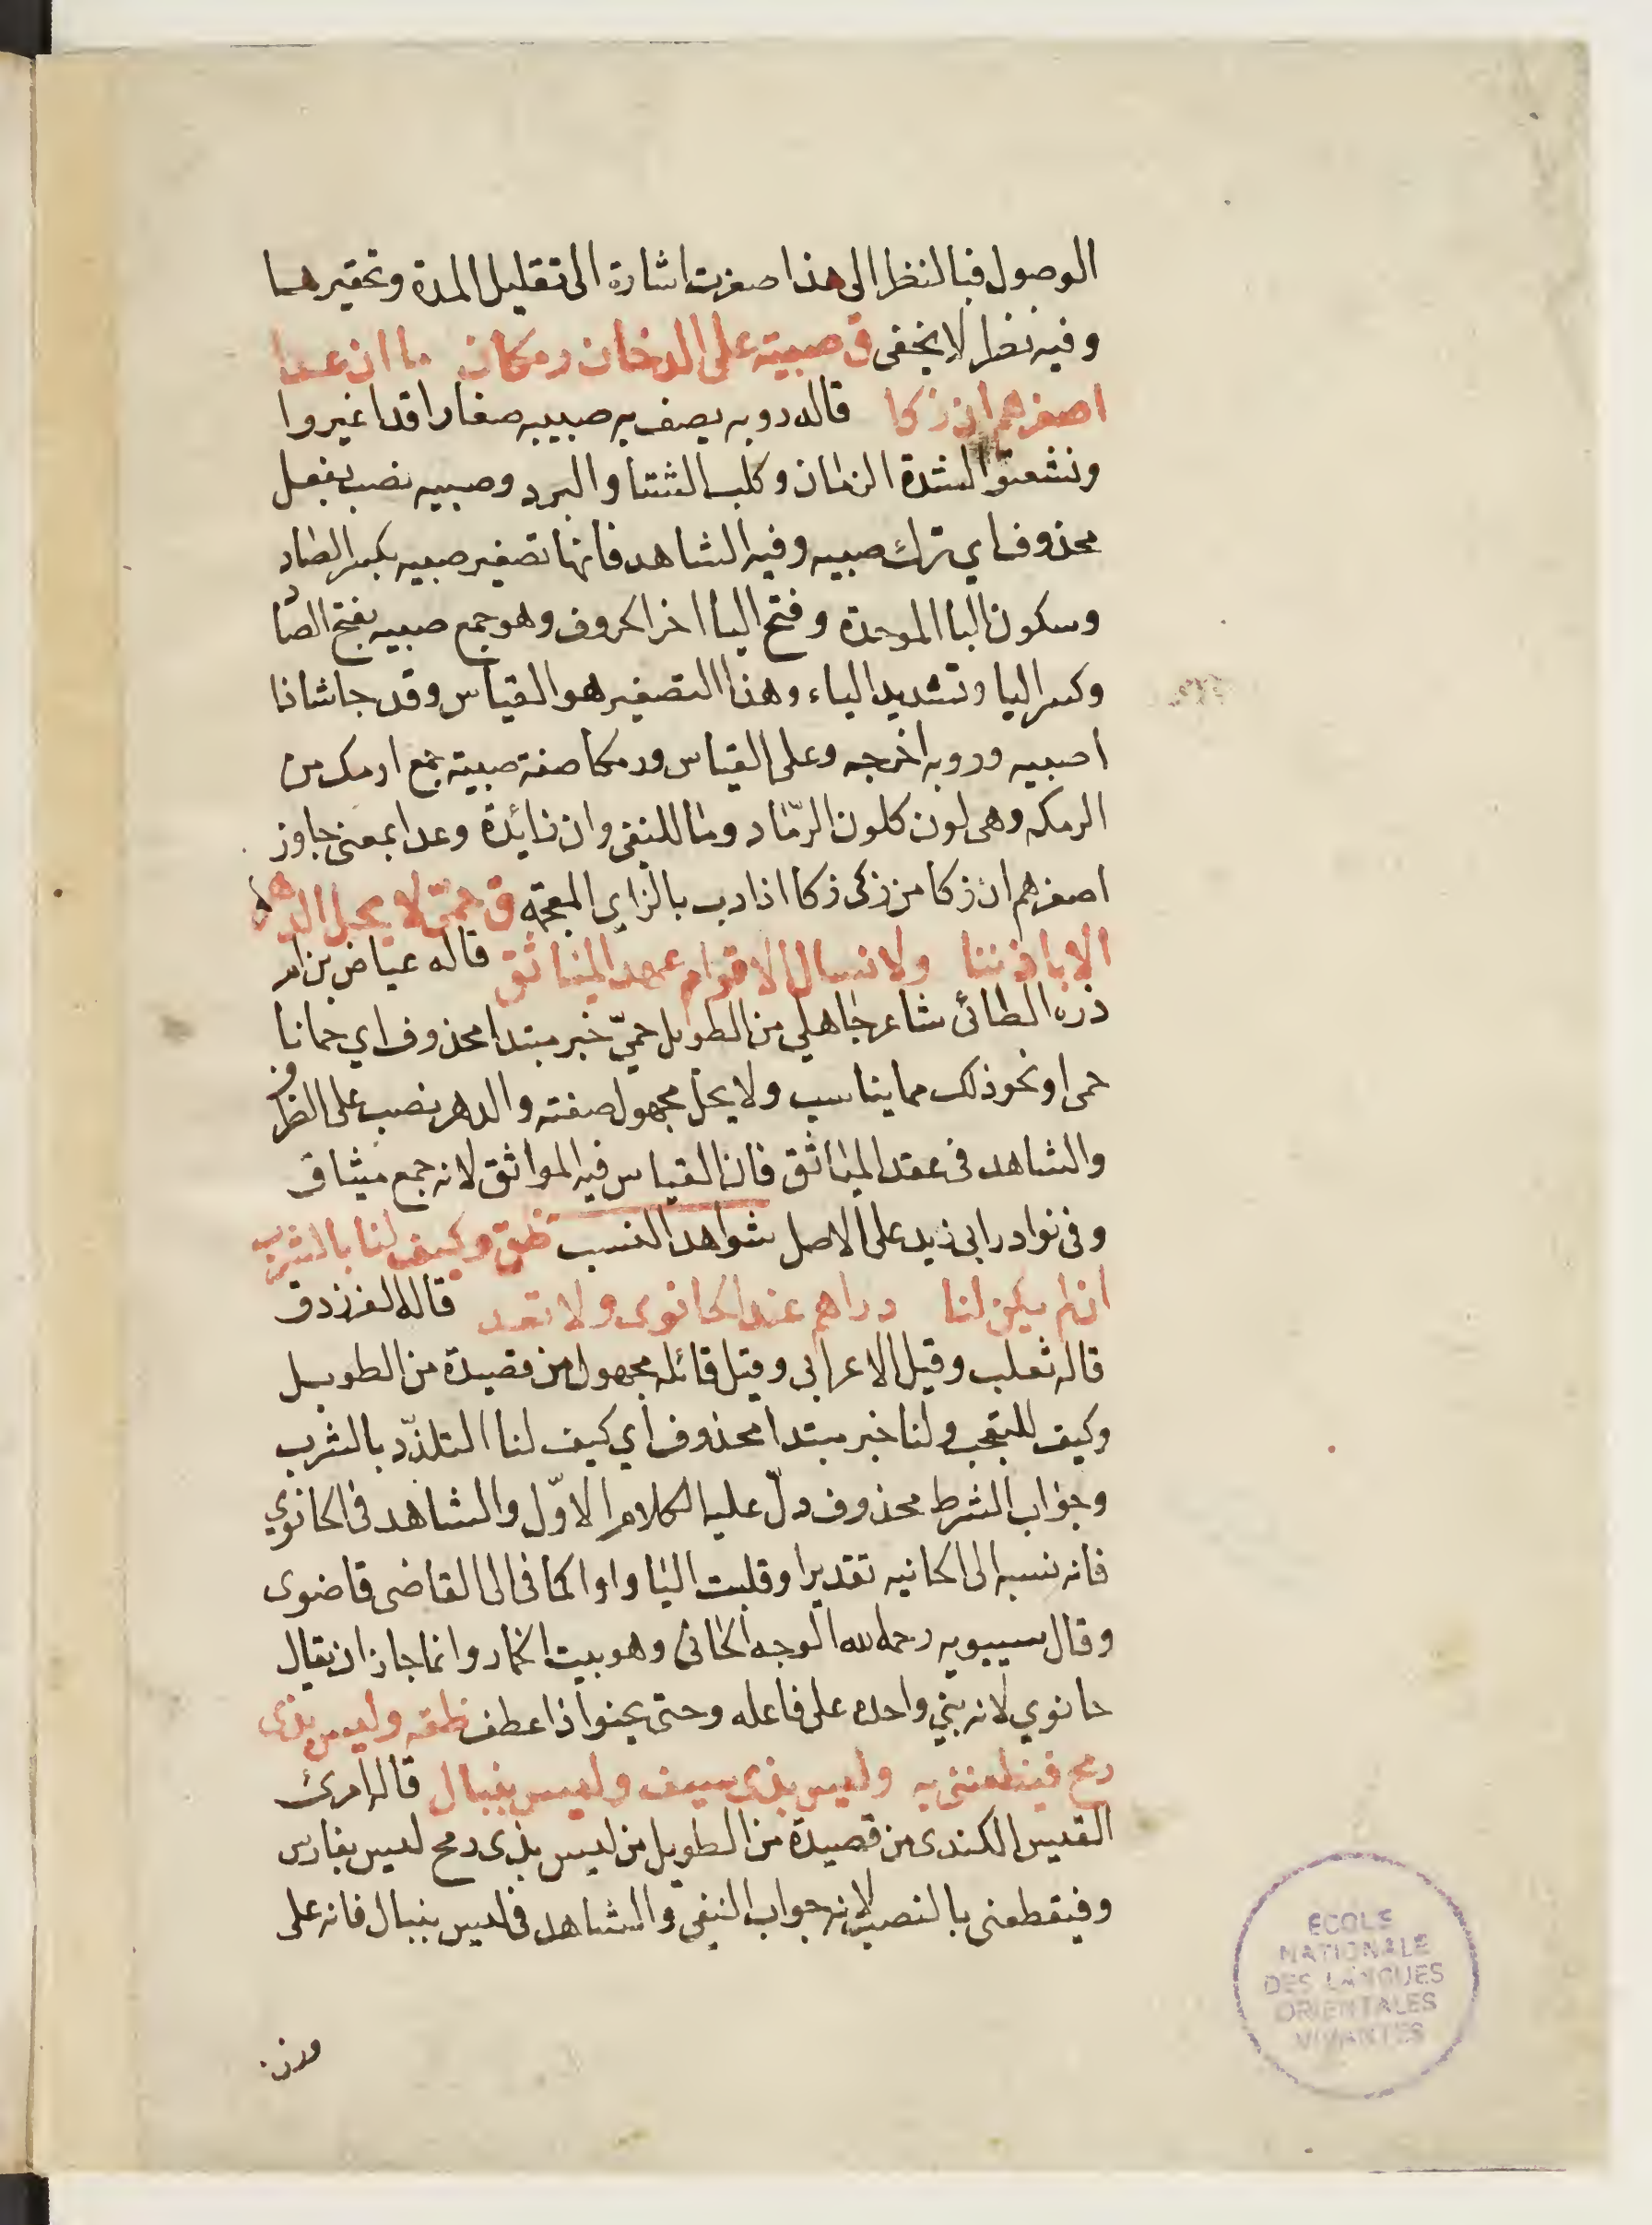 الوصول فبالنظر الى هذا صغرت اشارة الى تقليل المدة وتحقيرها
وفيه نظر لا يخفى ق صبية على الدخان رمكان ما ان عدا
اصغرهم ان زكا قاله روبه يصف به صبيبه صغارا قد اغيروا
وتشعثوا لشدة الزمان وكلب الشتا والبرد وصبيه نصب بفعل
محذوف اي ترك صبيه وفيه الشاهد فانها تصغير صبيه بكسر الصاد
وسكون البا الموحدة وفتح اليا اخر الحروف وهو جمع صبيه بفتح الصاد
وكسر اليا وتشديد الياء وهذا التصغير هو القياس وقد جا شاذا
اصبيه وروبه اخرجه وعلى القياس ورمكا صفة صبية جمع ارمك من
الرمكه وهى لون كلون الرّماد وما للنفى وان زائدة وعدا بمعنى جاوز
اصغرهم ان زكا من زكى زكا اذا دب بالزاي المعجمة ق حمىّ لا يحل الدهر
الا باذننا ولا نسال الاقوام عهد المياثق قاله عياض بن ام
ذره الطائى شاعر جاهلي من الطويل حمىّ خبر مبتدا محذوف اي حمانا
حمى او نحو ذلك مما يناسب ولا يحل مجهول صفته والدهر نصب على الظرف
والشاهد فى عقد المياثق فان القياس فيه المواثق لانه جمع ميثاق
وفى نوادر ابى زيد على الاصل شواهد النسب ظق وكيف لنا بالشرب
ان لم يكن لنا دراهم عند الحانوى ولا نقد قاله الفرزدق
قاله ثعلب وقيل الاعرابى وقيل قائله مجهول من قصيدة من الطويل
وكيف للتعجب ولنا خبر مبتدا محذوف اي كيف لنا التلذّذ بالشرب
وجواب الشرط محذوف دلّ عليه الكلام الاوّل والشاهد فى الحانوي
فانه نسبه الى الحانيه تقديرا وقلبت اليا واوا كما فى الى القاضى قاضوى
وقال سيبويه رحمه الله الوجه الحانى وهو بيت الخمار وانما جاز ان يقال
حانوي لانه بني واحده على فاعله وحتى يحنوا اذا عطف ظقه وليس بذى
رمح فيطعننى به وليس بذى سيف وليس بنبال قاله امرئ
القيس الكندى من قصيدة من الطويل من ليس بذى رمح ليس بفارس
وفيقطعنى بالنصب لانه جواب النفى والشاهد فى ليس بنبال فانه على
وزن
ECOLE
NATIONALE
DES LANGUES
ORIENTALES
VIVANTES